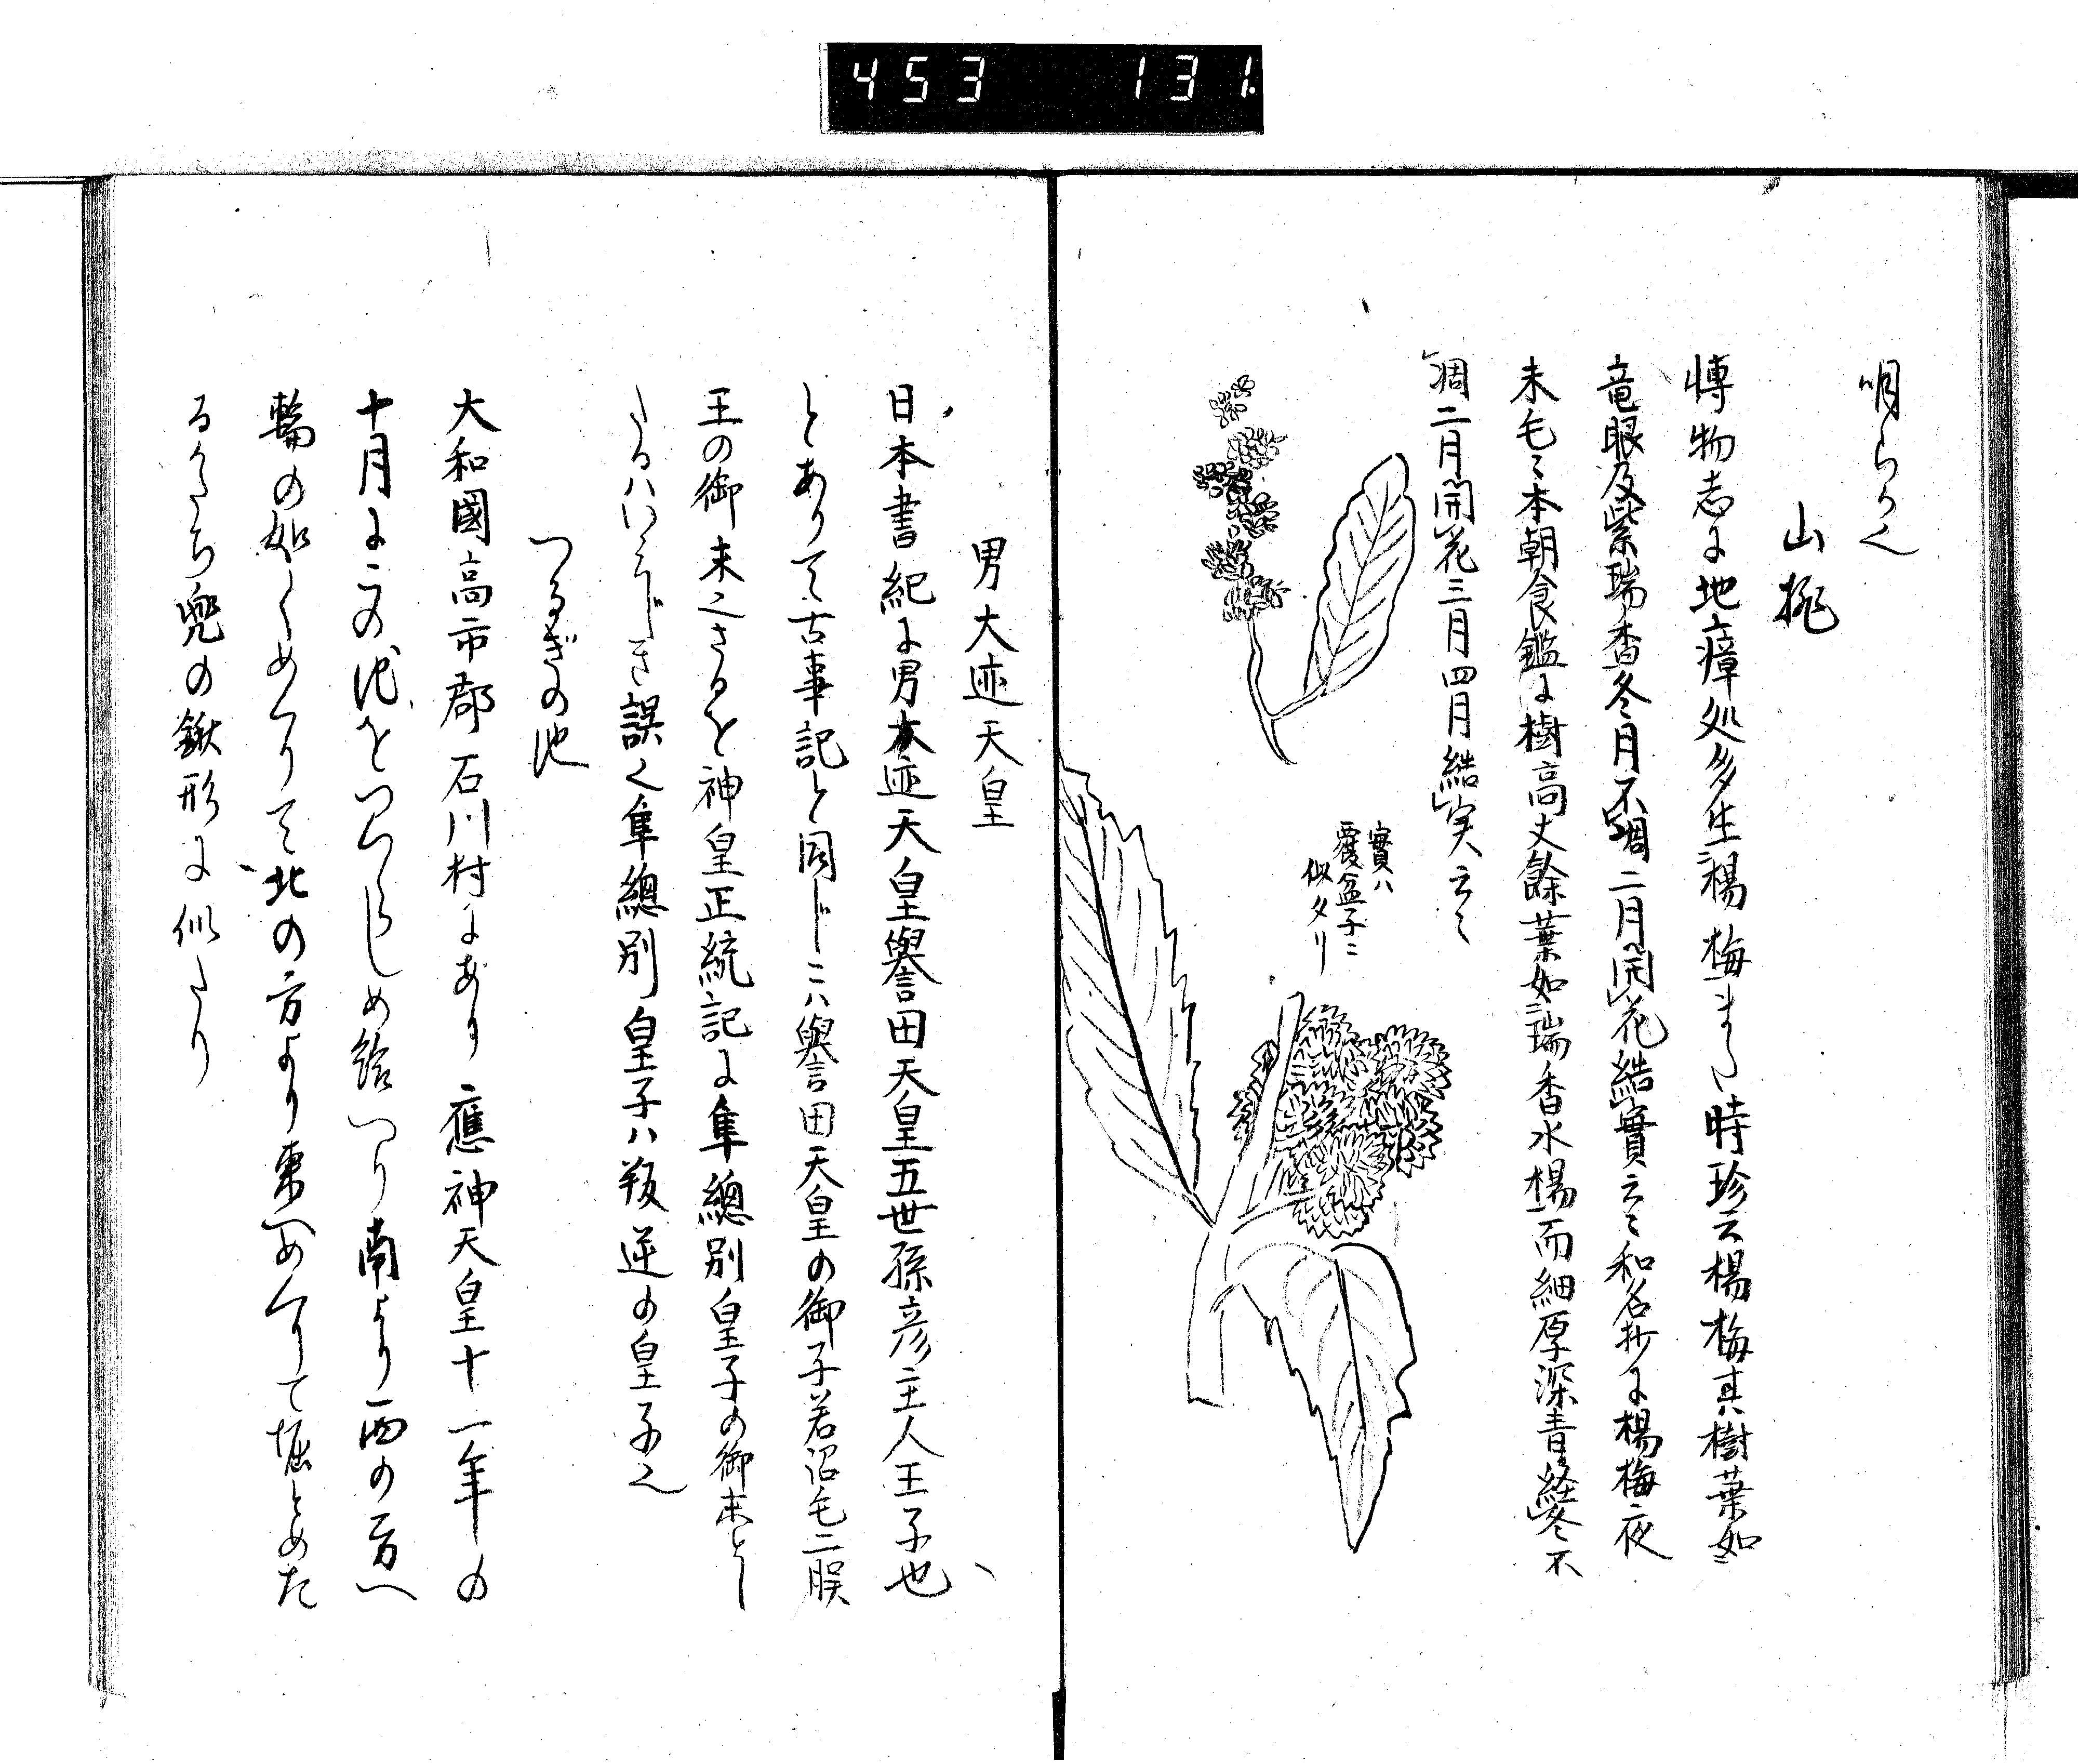 453 131.
明らけし
山桃
博物志に地瘴処多生楊梅また時珍云楊梅其樹葉如
竜眼及紫瑞香冬月不凋二月開花結實云々和名抄に楊梅夜
末毛々本朝食鑑に樹高丈餘葉如瑞香水楊而細厚深青経冬不
凋二月開花三月四月結実云々
實ハ
覆盆子ニ
似タリ
男大迹天皇
日本書紀に男大迹天皇譽田天皇五世孫彦主人王子也
とありて古事記と同じこハ譽田天皇の御子若沼毛二脵
王の御末也さるを神皇正統記に隼總別皇子の御末とし
たるハいみじき誤也隼總別皇子ハ叛逆の皇子也
つるぎの池
大和國高市郡石川村にあり應神天皇十一年の
十月にこの池をつくらしめ給へり南より西の方へ
輪の如くめくりて北の方より東へめくりて堀とめた
るかたち兜の鍬形に似たり